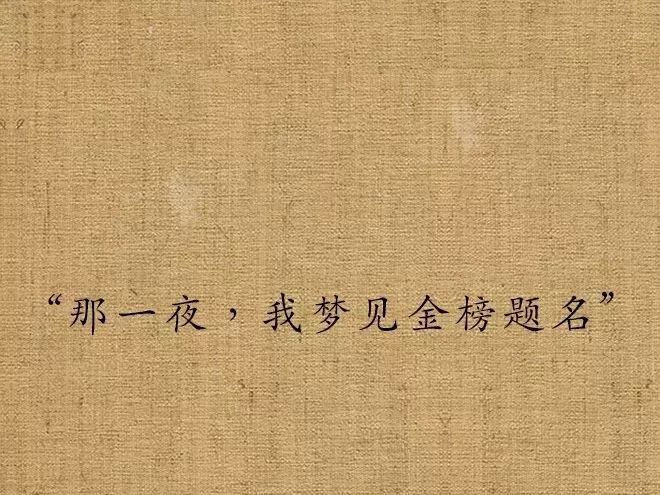 “那一夜，我梦见金榜题名”